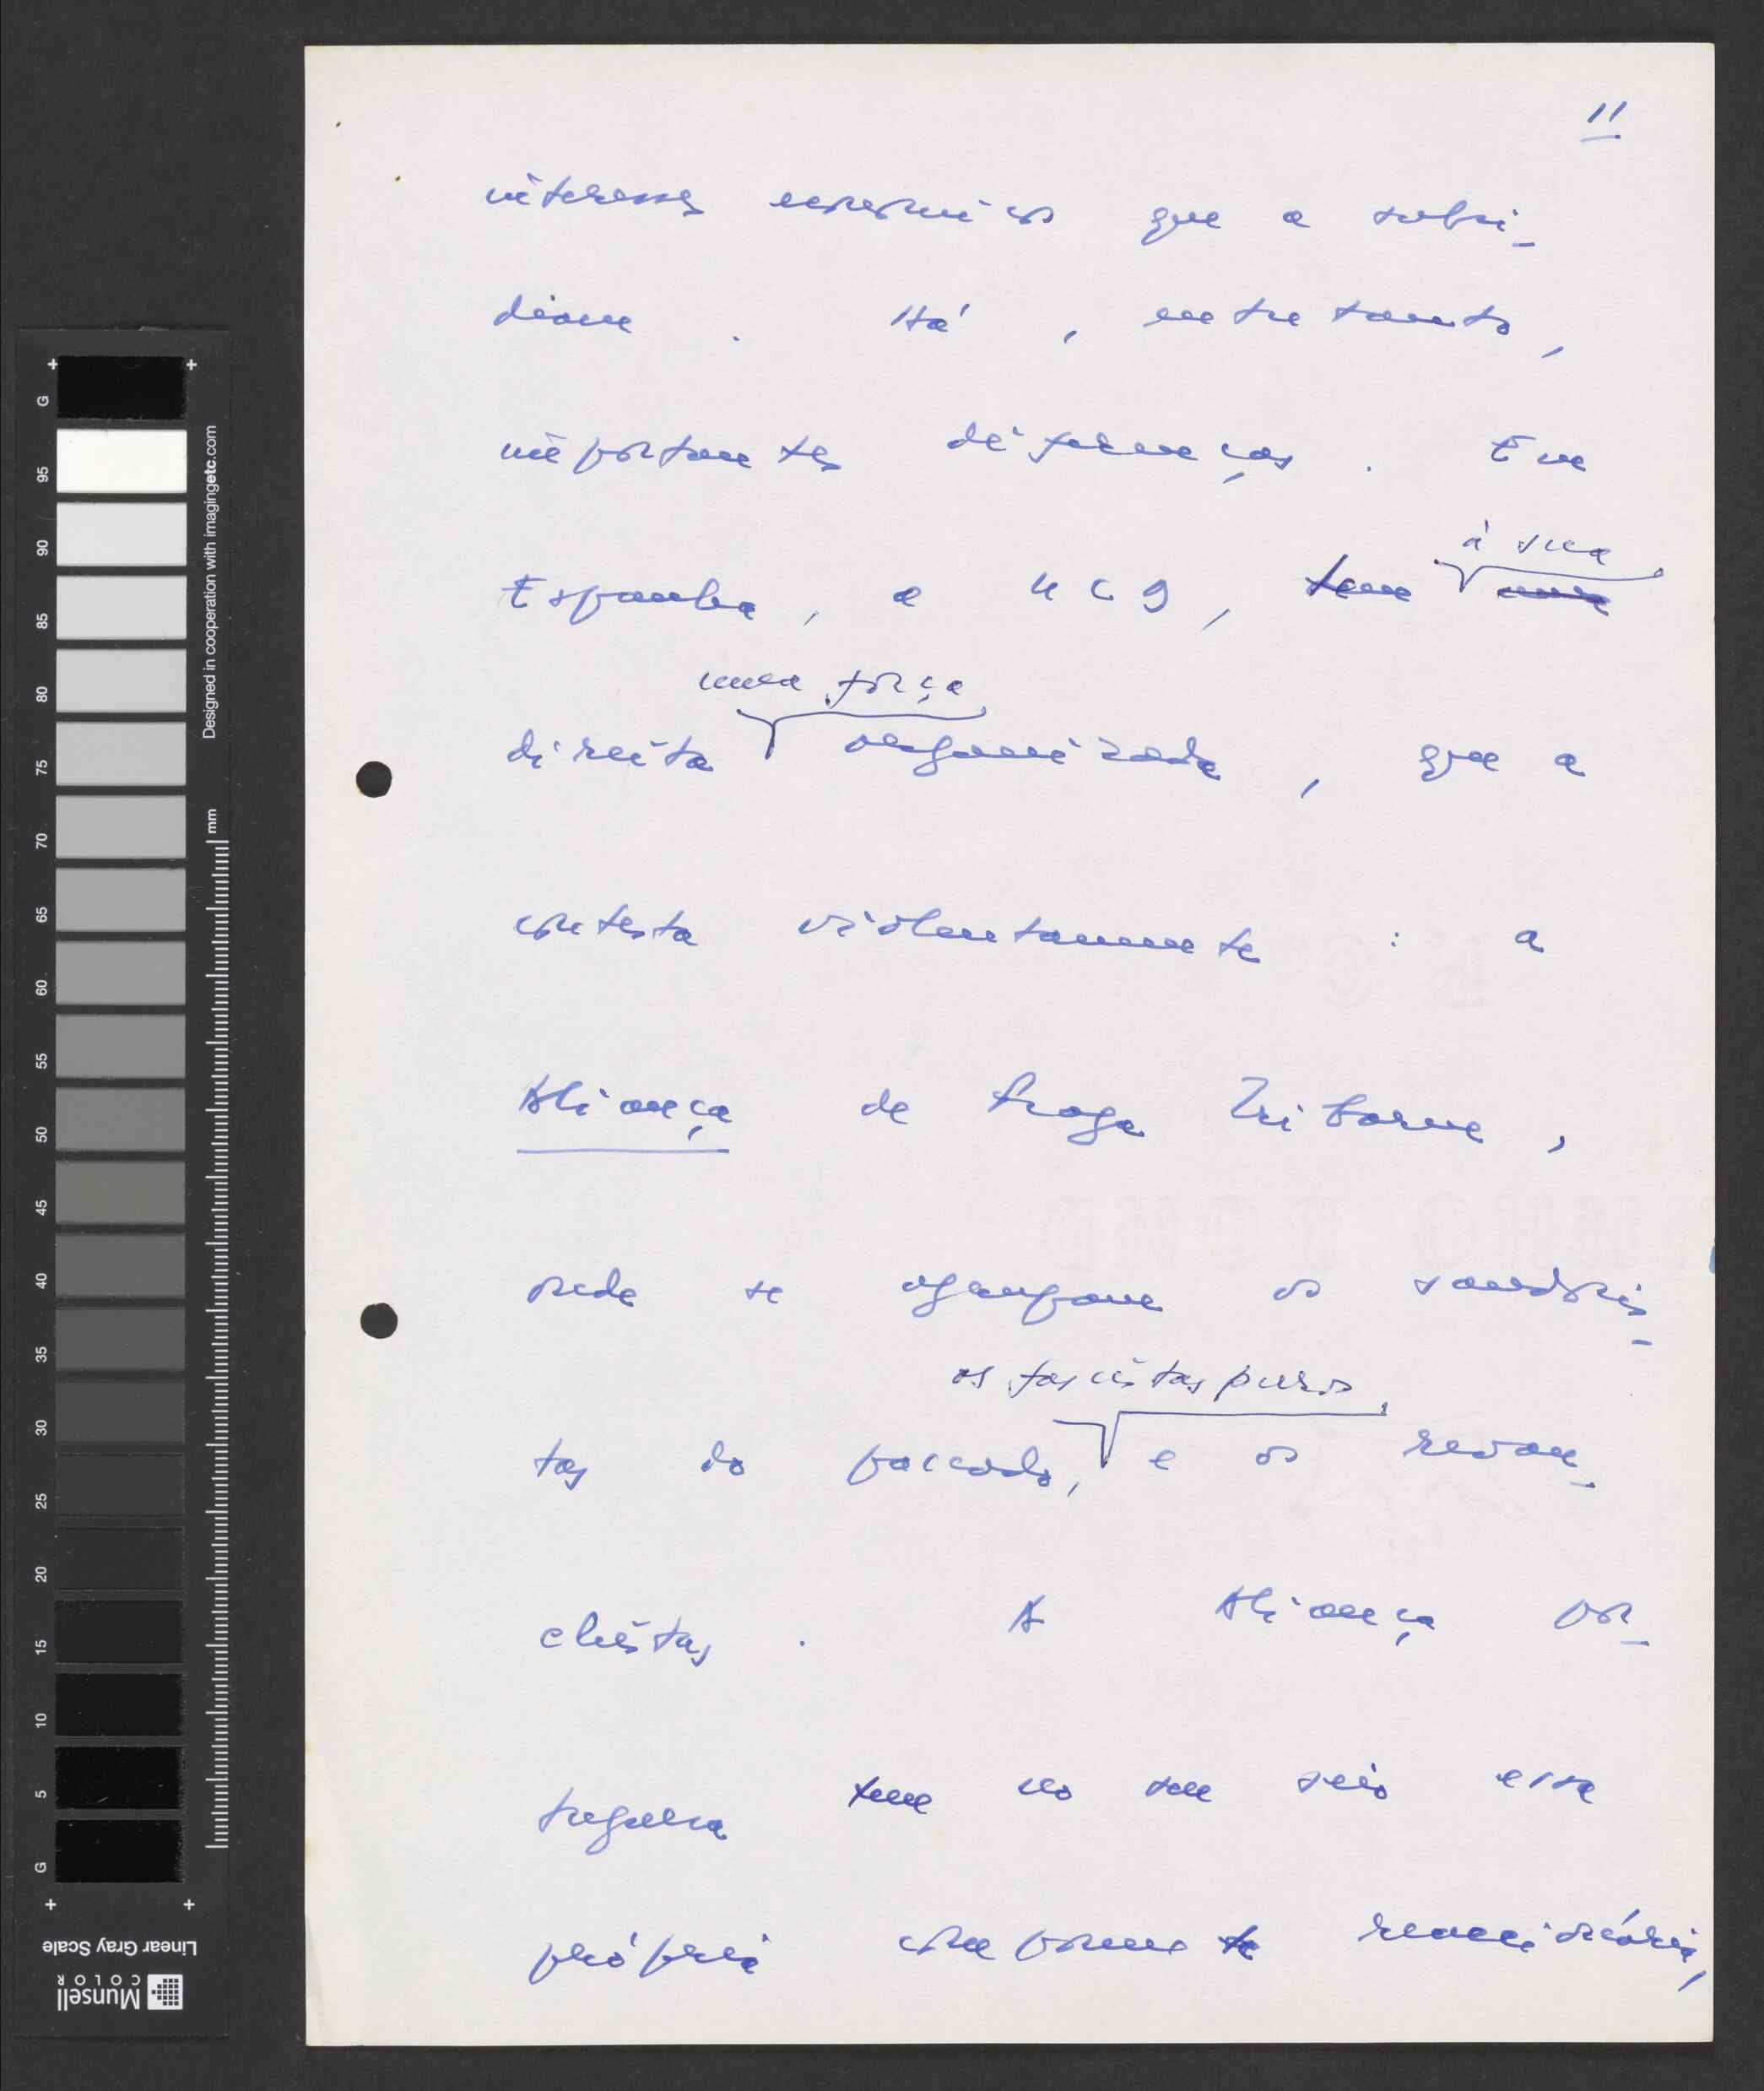 11
interesses economicos que a subsi-
diam. Há, entretanto,
importantes diferenças. Em
à sua
Espanha, a UCD, tem uma
uma força
direita organizada, que a
contesta violentamente: a
Aliança de Fraga Iribarne,
onde se agrupam os saudosis-
os fascistas puros
tas do passado, e os revan-
chistas. A Aliança por-
tuguesa tem no seu seio essa
própria componente reaccionária,
G
95
90
85
80
75
70
65
60
55
50
45
40
35
30
25
20
15
10
5
G
mm
Designed in cooperation with imagingetc.com
Linear Gray Scale
Munsell
COLOR